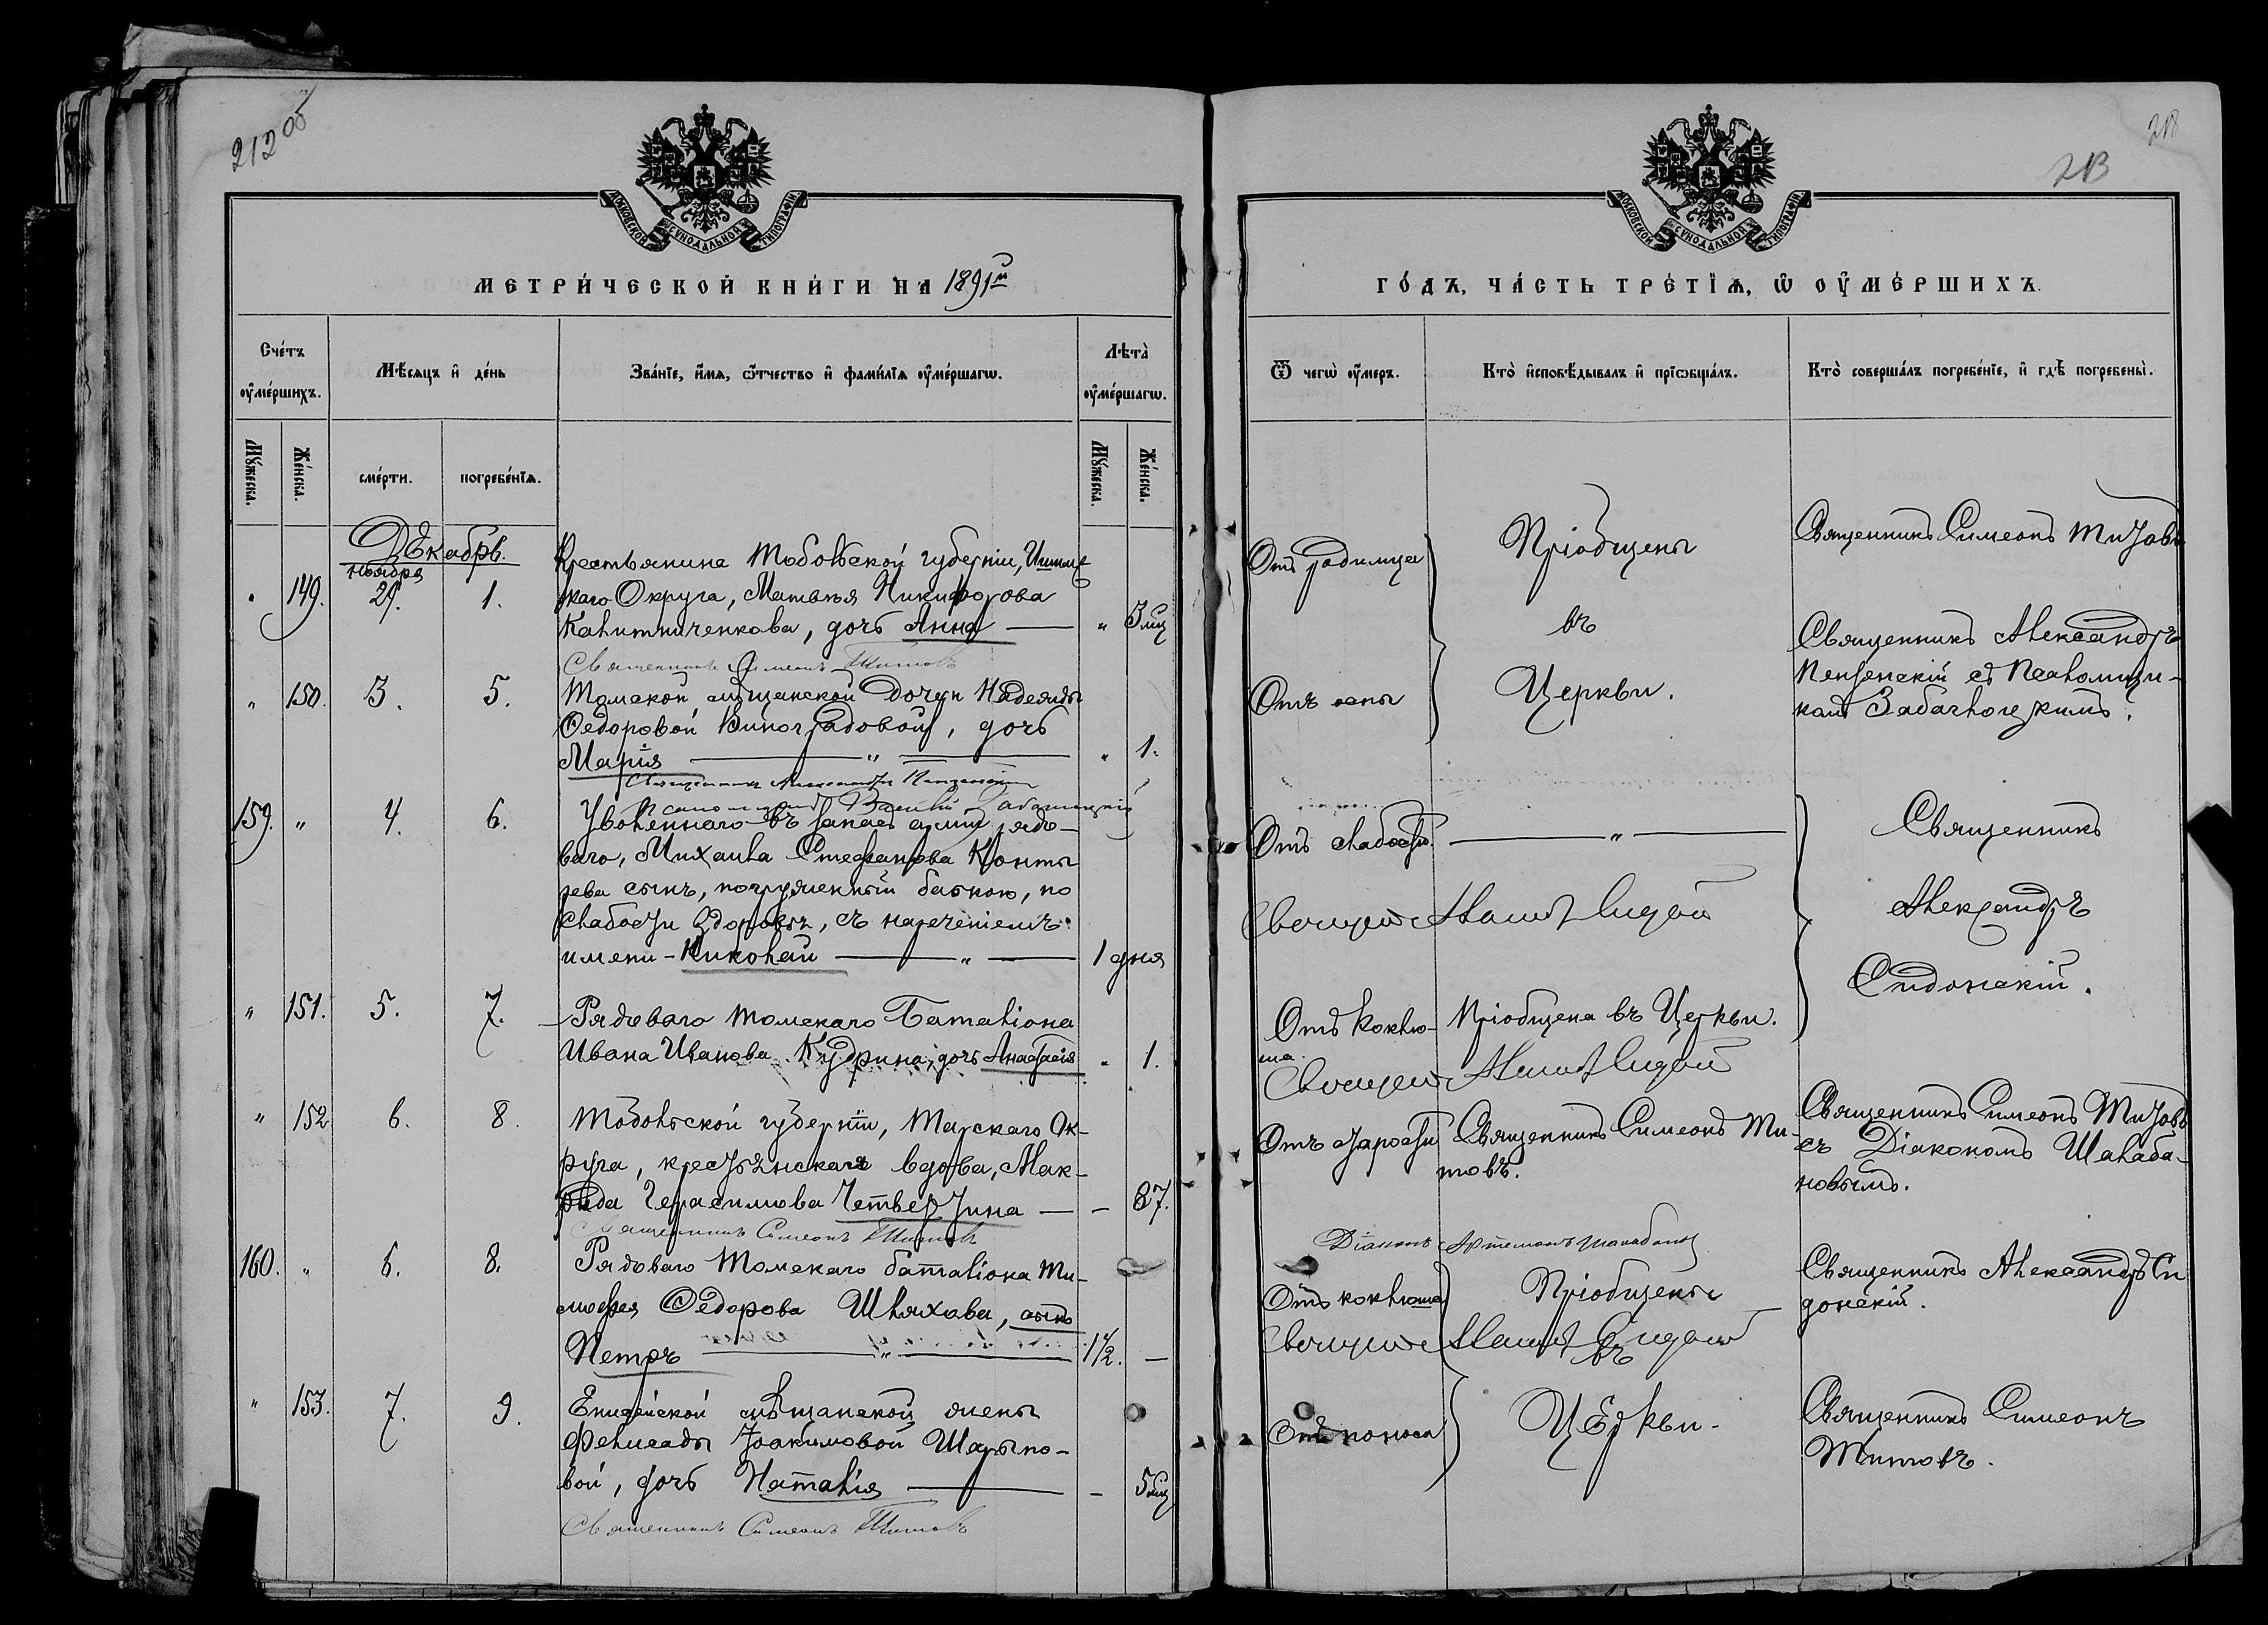 212 об
МОСКОВСКОЙ СѴНОДАЛЬНОЙ ТИПОГРАФІИ
МЕТРИ́ЧЕСКОЙ КНИ́ГИ НА 1891 г.
Сче́тъ оу҆ме́ршихъ.
Мѣ́сяцъ и҆ де́нь
Зва́нїе, и҆́мѧ, ѻ҆́тчество и҆ фами́лїѧ оу҆ме́ршагѡ.
Лѣта̀ оу҆ме́ршагѡ.
Мꙋ́жеска.
Же́нска.
сме́рти.
погребе́нїѧ.
Мꙋ́жеска.
Же́нска.
Декабрь.
ноября
" 149. 29. 1. Крестьянина Тобольской губерніи, Ишим
скаго Округа, Матвѣя Никифорова
Капитниченкова, дочь Анна " 3 мц
Священникъ Симеонъ Титовъ
" 150. 3. 5. Томской мѣщанской дочери Надежды
Ѳедоровой Виноградовой, дочь
Марія " " 1.
Священникъ Александръ Пензенскій
Псаломщикъ
159. " 4. 6. Уволеннаго въ запасъ арміи рядо-
ваго, Михаила Стефанова Конты
рева сынъ, погруженный бабкою, по
слабости здоровья, съ нареченіемъ
имени - Николай " 1 дня
" 151. 5. 7. Рядоваго Томскаго Баталіона
Ивана Иванова Кудрина, дочь Анастасія " 1.
" 152 6. 8. Тобольской губерніи, Тарскаго Ок-
руга, крестьянская вдова, Мак-
рида Герасимова Четвертина - 87.
Священникъ Симеонъ Титовъ
160. " 6. 8. Рядоваго Томскаго баталіона Ти-
мофея Ѳедорова Шляхова, сынъ
Петръ " 1½. -
" 153. 7. 9. Енисейской мѣщанской жены
Фелисады Іоакимовой Шарыпо-
вой, дочь Наталія - 5 мц
Священникъ Симеонъ Титовъ
218
213
МОСКОВСКОЙ СѴНОДАЛЬНОЙ ТИПОГРАФІИ
ГО́ДЪ, ЧА́СТЬ ТРЕ́ТЇѦ, Ѡ҆ ОУ҆МЕ́РШИХЪ.
Ѿ чегѡ̀ оу҆́меръ.
Кто̀ и҆сповѣ́дывалъ и҆ прїѡбща́лъ.
Кто̀ соверша́лъ погребе́нїе, и҆ гдѣ̀ погребены̀.
Отъ родимца Пріобщены Священникъ Симеонъ Титовъ
въ
Отъ оспы Церкви. Священникъ Александръ
Пензенскій съ Псаломщи-
комъ
Отъ слабости. " Священникъ
Александръ
Сидонскій.
Отъ коклю- Пріобщена въ Церкви.
ша.
Отъ старости Священникъ Симеонъ Ти-
товъ. Священникъ Симеонъ Титовъ
съ Діакономъ Шалаба-
новымъ.
Діаконъ Артемонъ Шалабановъ
Отъ коклюша Пріобщены Священникъ Александръ Си
донскій.
въ
Отъ поноса Церкви. Священникъ Симеонъ
Титовъ.